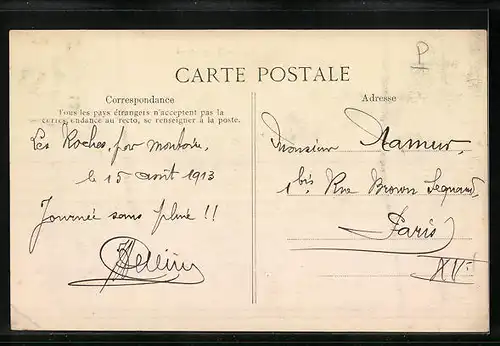 P
CARTE POSTALE
Correspondance
Tous les pays étrangers n'acceptent pas la
correspondance au recto, se renseigner à la poste.
Les Roches, par Montoire,
le 15 août 1913
Journée sans pluie !!
Adresse
Monsieur Namur,
1 bis, Rue Brown Sequard,
Paris
XVe